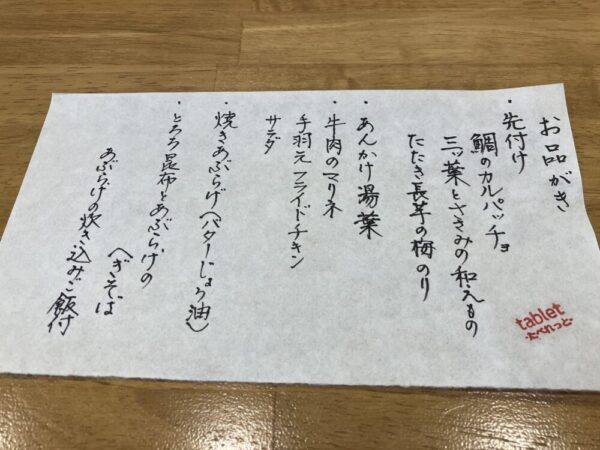 お品がき
・先付け
鯛のカルパッチョ
三ッ葉とささみの和えもの
たたき長芋の梅のり
・あんかけ湯葉
・牛肉のマリネ
手羽元フライドチキン
サラダ
・焼きあぶらげ(バターじょう油)
・とろろ昆布とあぶらげの
へぎそば
あぶらげの炊き込みご飯付
tablet
・たべれっと・